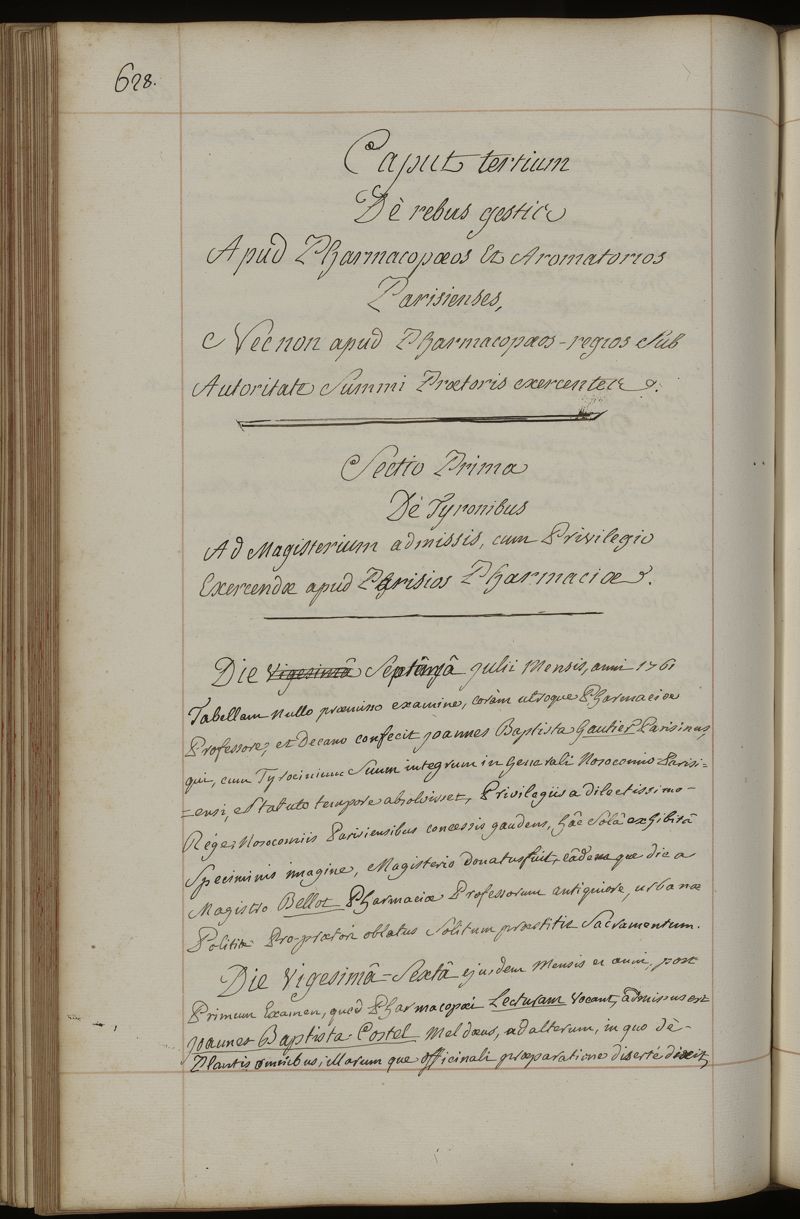 628.
Caput tertium
Dè rebus gestis
Apud Pharmacopæos Et Aromatorios
Parisienses,
Necnon apud Pharmacopæos-regios Sub
Autoritate Summi Prætoris exercentes.
Sectio Prima
Dè Tyronibus
Ad Magisterium admissis, cum Privilegio
Exercendæ apud Parisios Pharmaciæ.
Die Vigesimâ Septimâ julii Mensis, anni 1761
Tabellam nullo præmisso examine, coràm utroque Pharmaciæ
Professore, et Decano confecit joannes Baptista Gautier Parisinus,
qui, cum Tyrocinium Suum integrum in Generali Nosocomio Parisi=
=ensi, Statuto tempore absolvisset, Privilegiis a dilectissimo-
Rége, Nosocomiis Parisiensibus concessis gaudens, hâc Solâ exhibitâ
Speciminis imagine, Magisterio donatus fuit, eâdemque die a
Magistro Bellot Pharmaciæ Professorum antiquiore, urbanæ
Politiæ Pro-prætori oblatus Solitum præstitit Sacramentum.
Die Vigesimâ-Sextâ ejusdem Mensis et anni, post
Primum Examen, quod Pharmacopæi Lecturam vocant, admissus est
joannes Baptista Costel Meldæus, ad alterum, in quo dè-
Plantis omnibus, illarum que officinali præparatione disertè dixit,